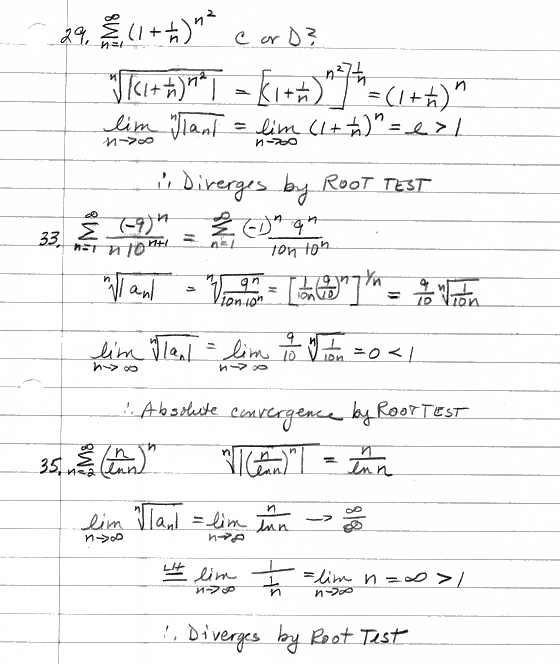 29. ∞∑n=1 (1+1/n)^n² C or D?
ⁿ√|(1+1/n)^n²| = [(1+1/n)^n²]^1/n = (1+1/n)^n
lim n→∞ ⁿ√|aₙ| = lim n→∞ (1+1/n)^n = e > 1
∴ Diverges by ROOT TEST
33. ∞∑n=1 (-9)^n / n 10^(n+1) = ∞∑n=1 (-1)^n 9^n / 10n 10^n
ⁿ√|aₙ| = ⁿ√(9^n / 10n 10^n) = [1/10n (9/10)^n]^1/n = 9/10 ⁿ√(1/10n)
lim n→∞ ⁿ√|aₙ| = lim n→∞ 9/10 ⁿ√(1/10n) = 0 < 1
∴ Absolute convergence by ROOT TEST
35. ∞∑n=2 (n/ln n)^n ⁿ√|(n/ln n)^n| = n/ln n
lim n→∞ ⁿ√|aₙ| = lim n→∞ n/ln n → ∞/∞
LH = lim n→∞ 1/(1/n) = lim n→∞ n = ∞ > 1
∴ Diverges by Root Test